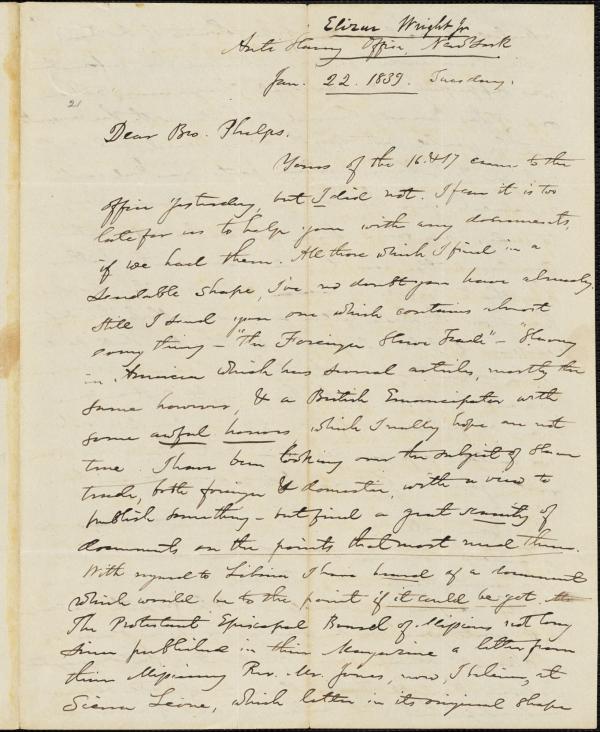 Elizur Wright Jr
Anti Slavery Office, New York
Jan. 22. 1839. Tuesday.
21
Dear Bro. Phelps.
Yours of the 16. & 17 came to the
office yesterday, but I did not. I fear it is too
late for us to help you with any documents,
if we had them. All those which I find in a
sendable shape, I've no doubt you have already.
Still I send you one which contains almost
every thing - "The Foreign Slave Trade" - "Slavery
in America which has several articles, mostly the
same horrors, & a British Emancipator with
some awful horrors which I really hope are not
true. I have been looking over the subject of Slave
trade, both foreign & domestic, with a view to
publish something - but find a great scarcity of
documents on the points that most need them.
With regard to Liberia I have heard of a document
which would be to the point if it could be got.
The Protestant Episcopal Board of Missions not long
since published in their Magazine a letter from
their Missionary Rev. Mr. Jones, now, I believe, at
Sierra Leone, which letter in its original shape